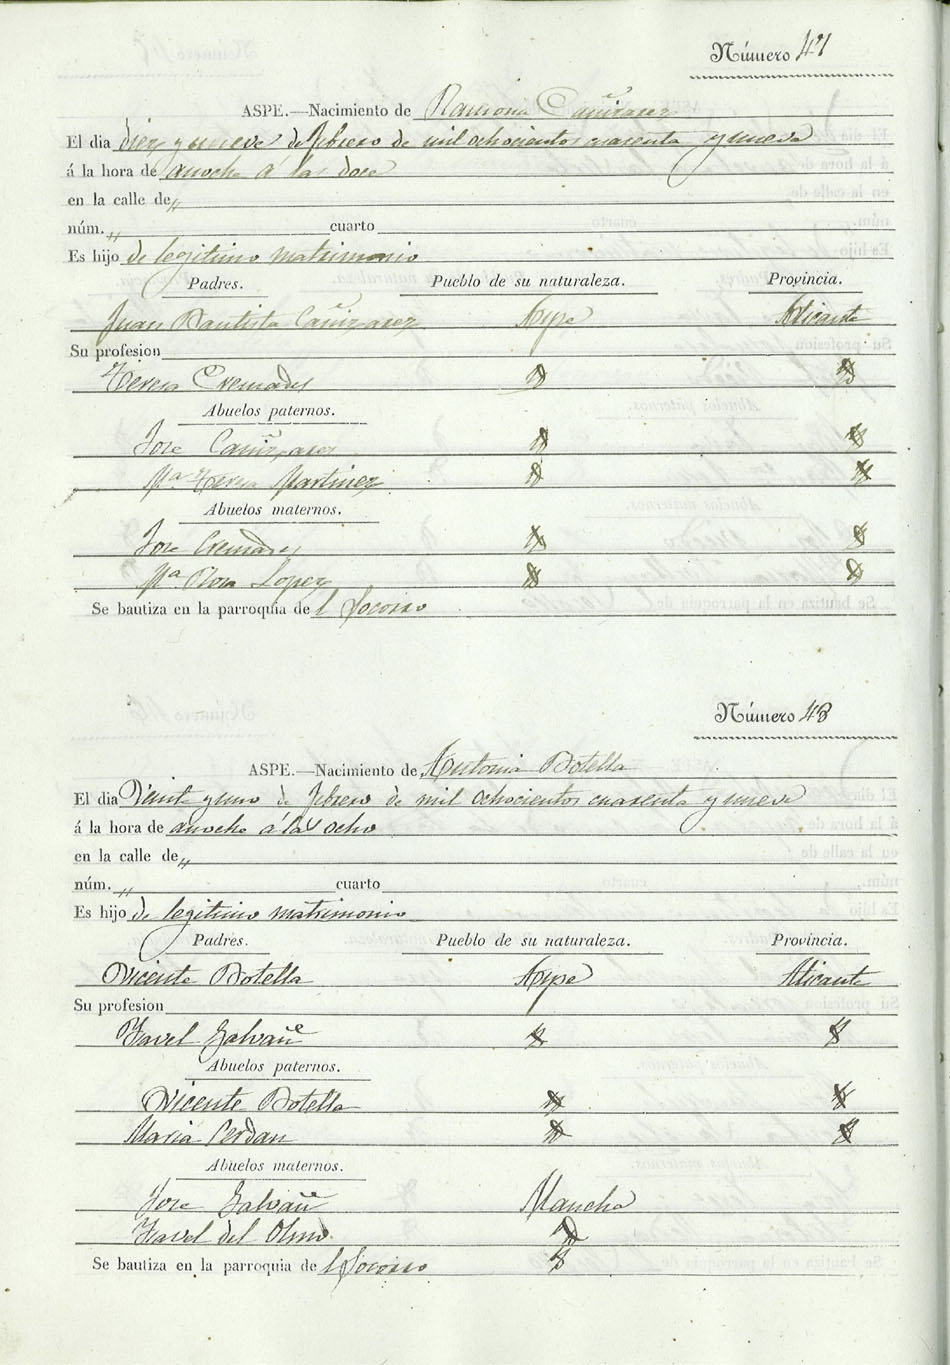 Número 47
ASPE.—Nacimiento de Ramona Cañizares
El dia diez y nueve de febrero de mil ochocientos cuarenta y nueve
á la hora de anoche á las doce
en la calle de „
núm. „ cuarto
Es hijo de legitimo matrimonio
Padres. Pueblo de su naturaleza. Provincia.
Juan Bautista Cañizares Aspe Alicante
Su profesion
Teresa Cremades
Abuelos paternos.
Jose Cañizares
Mª Teresa Martinez
Abuelos maternos.
Jose Cremades
Mª Lopez
Se bautiza en la parroquia de l Socorro
Número 48
ASPE.—Nacimiento de Antonia Botella
El dia Veinte y uno de febrero de mil ochocientos cuarenta y nueve
á la hora de anoche á las ocho
en la calle de „
núm. „ cuarto
Es hijo de legitimo matrimonio
Padres. Pueblo de su naturaleza. Provincia.
Vicente Botella Aspe Alicante
Su profesion
Ysavel Galvañ
Abuelos paternos.
Vicente Botella
Maria Cerdan
Abuelos maternos.
Jose Galvañ Mancha
Ysavel del Olmo
Se bautiza en la parroquia de l Socorro